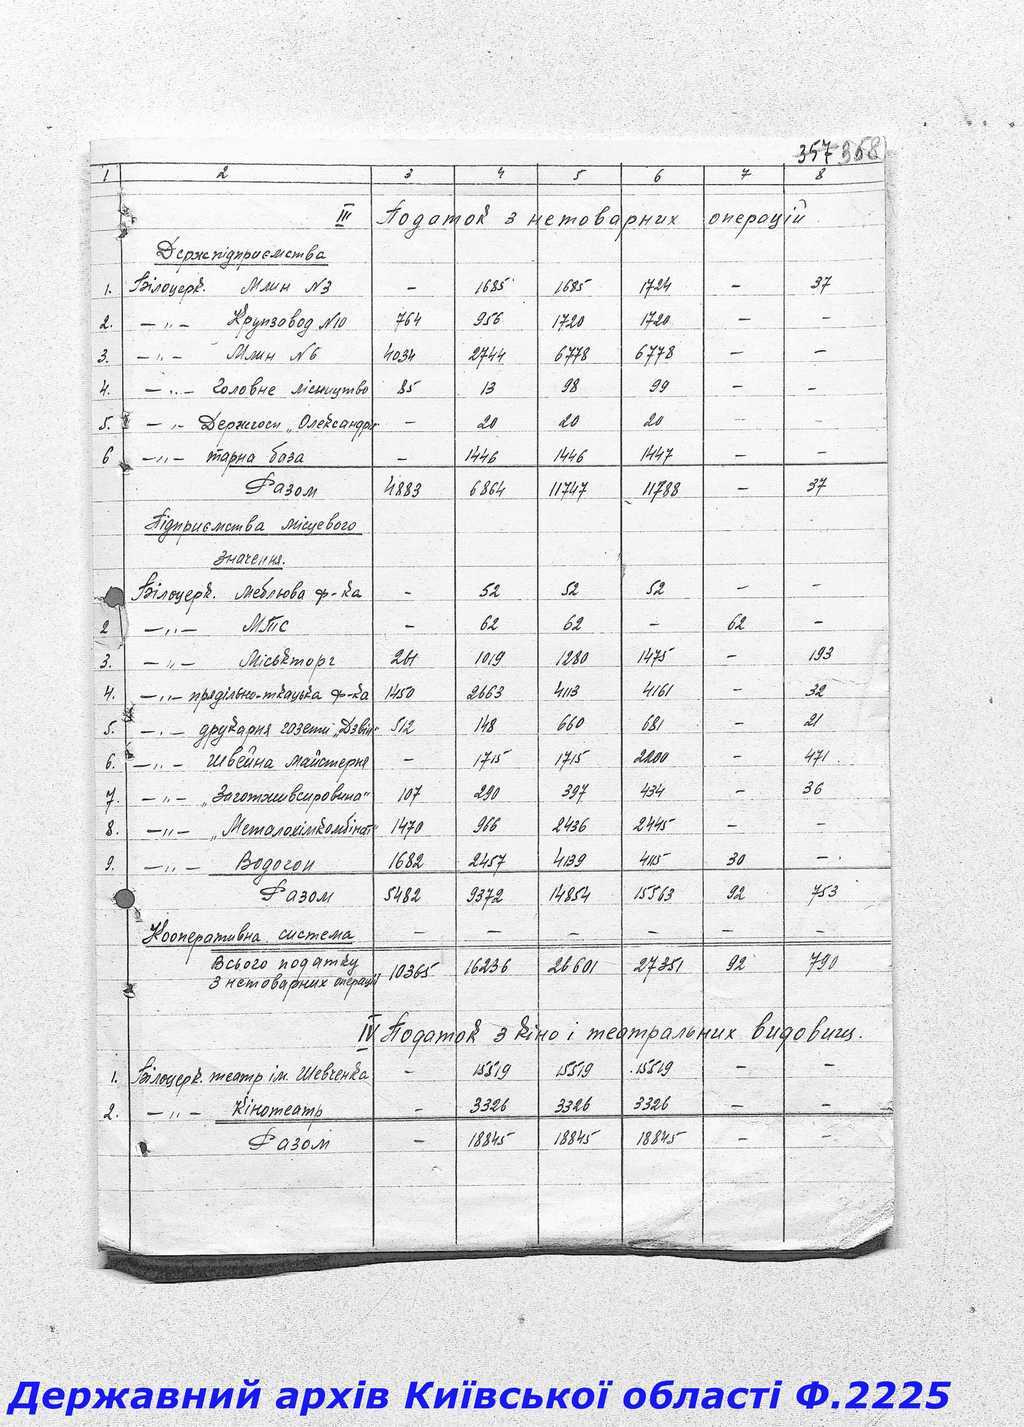 357 358
1 2 3 4 5 6 7 8
III Податок з нетоварних операцій
Держпідприємства
1. Білоцерк. Млин №3 – 1685 1685 1724 – 37
2. –„– Крупзавод №10 764 956 1720 1720 – –
3. –„– Млин №6 4034 2744 6778 6778 – –
4. –„– Головне лісництво 85 13 98 99 – –
5. –„– Держгосп „Олександрія – 20 20 20 – –
6 –„– тарна база – 1446 1446 1447 – –
Разом 4883 6864 11747 11788 – 37
Підприємства місцевого
значення.
Білоцерк. меблюва ф-ка – 52 52 52 – –
2 –„– МТіС – 62 62 – 62 –
3. –„– Міськторг 261 1019 1280 1475 – 193
4. –„– прядільно-ткацька ф-ка 1450 2663 4113 4161 – 32
5. –„– друкарня газети „Дзвін“ 512 148 660 681 – 21
6. –„– Швейна майстерня – 1715 1715 2200 – 471
7. –„– „Заготживсировина“ 107 290 397 434 – 36
8. –„– „Металохімкомбінат“ 1470 966 2436 2445 – –
9. –„– Водогон 1682 2457 4139 4115 30 –
Разом 5482 9372 14854 15563 92 753
Кооперативна система – – – – – –
Всього податку
з нетоварних операцій 10365 16236 26601 27351 92 790
IV Податок з кіно і театральних видовищ.
1. Білоцерк. театр ім. Шевченка – 15519 15519 15519 – –
2. –„– Кінотеатр – 3326 3326 3326 – –
Разом – 18845 18845 18845 – –
Державний архів Київської області Ф.2225